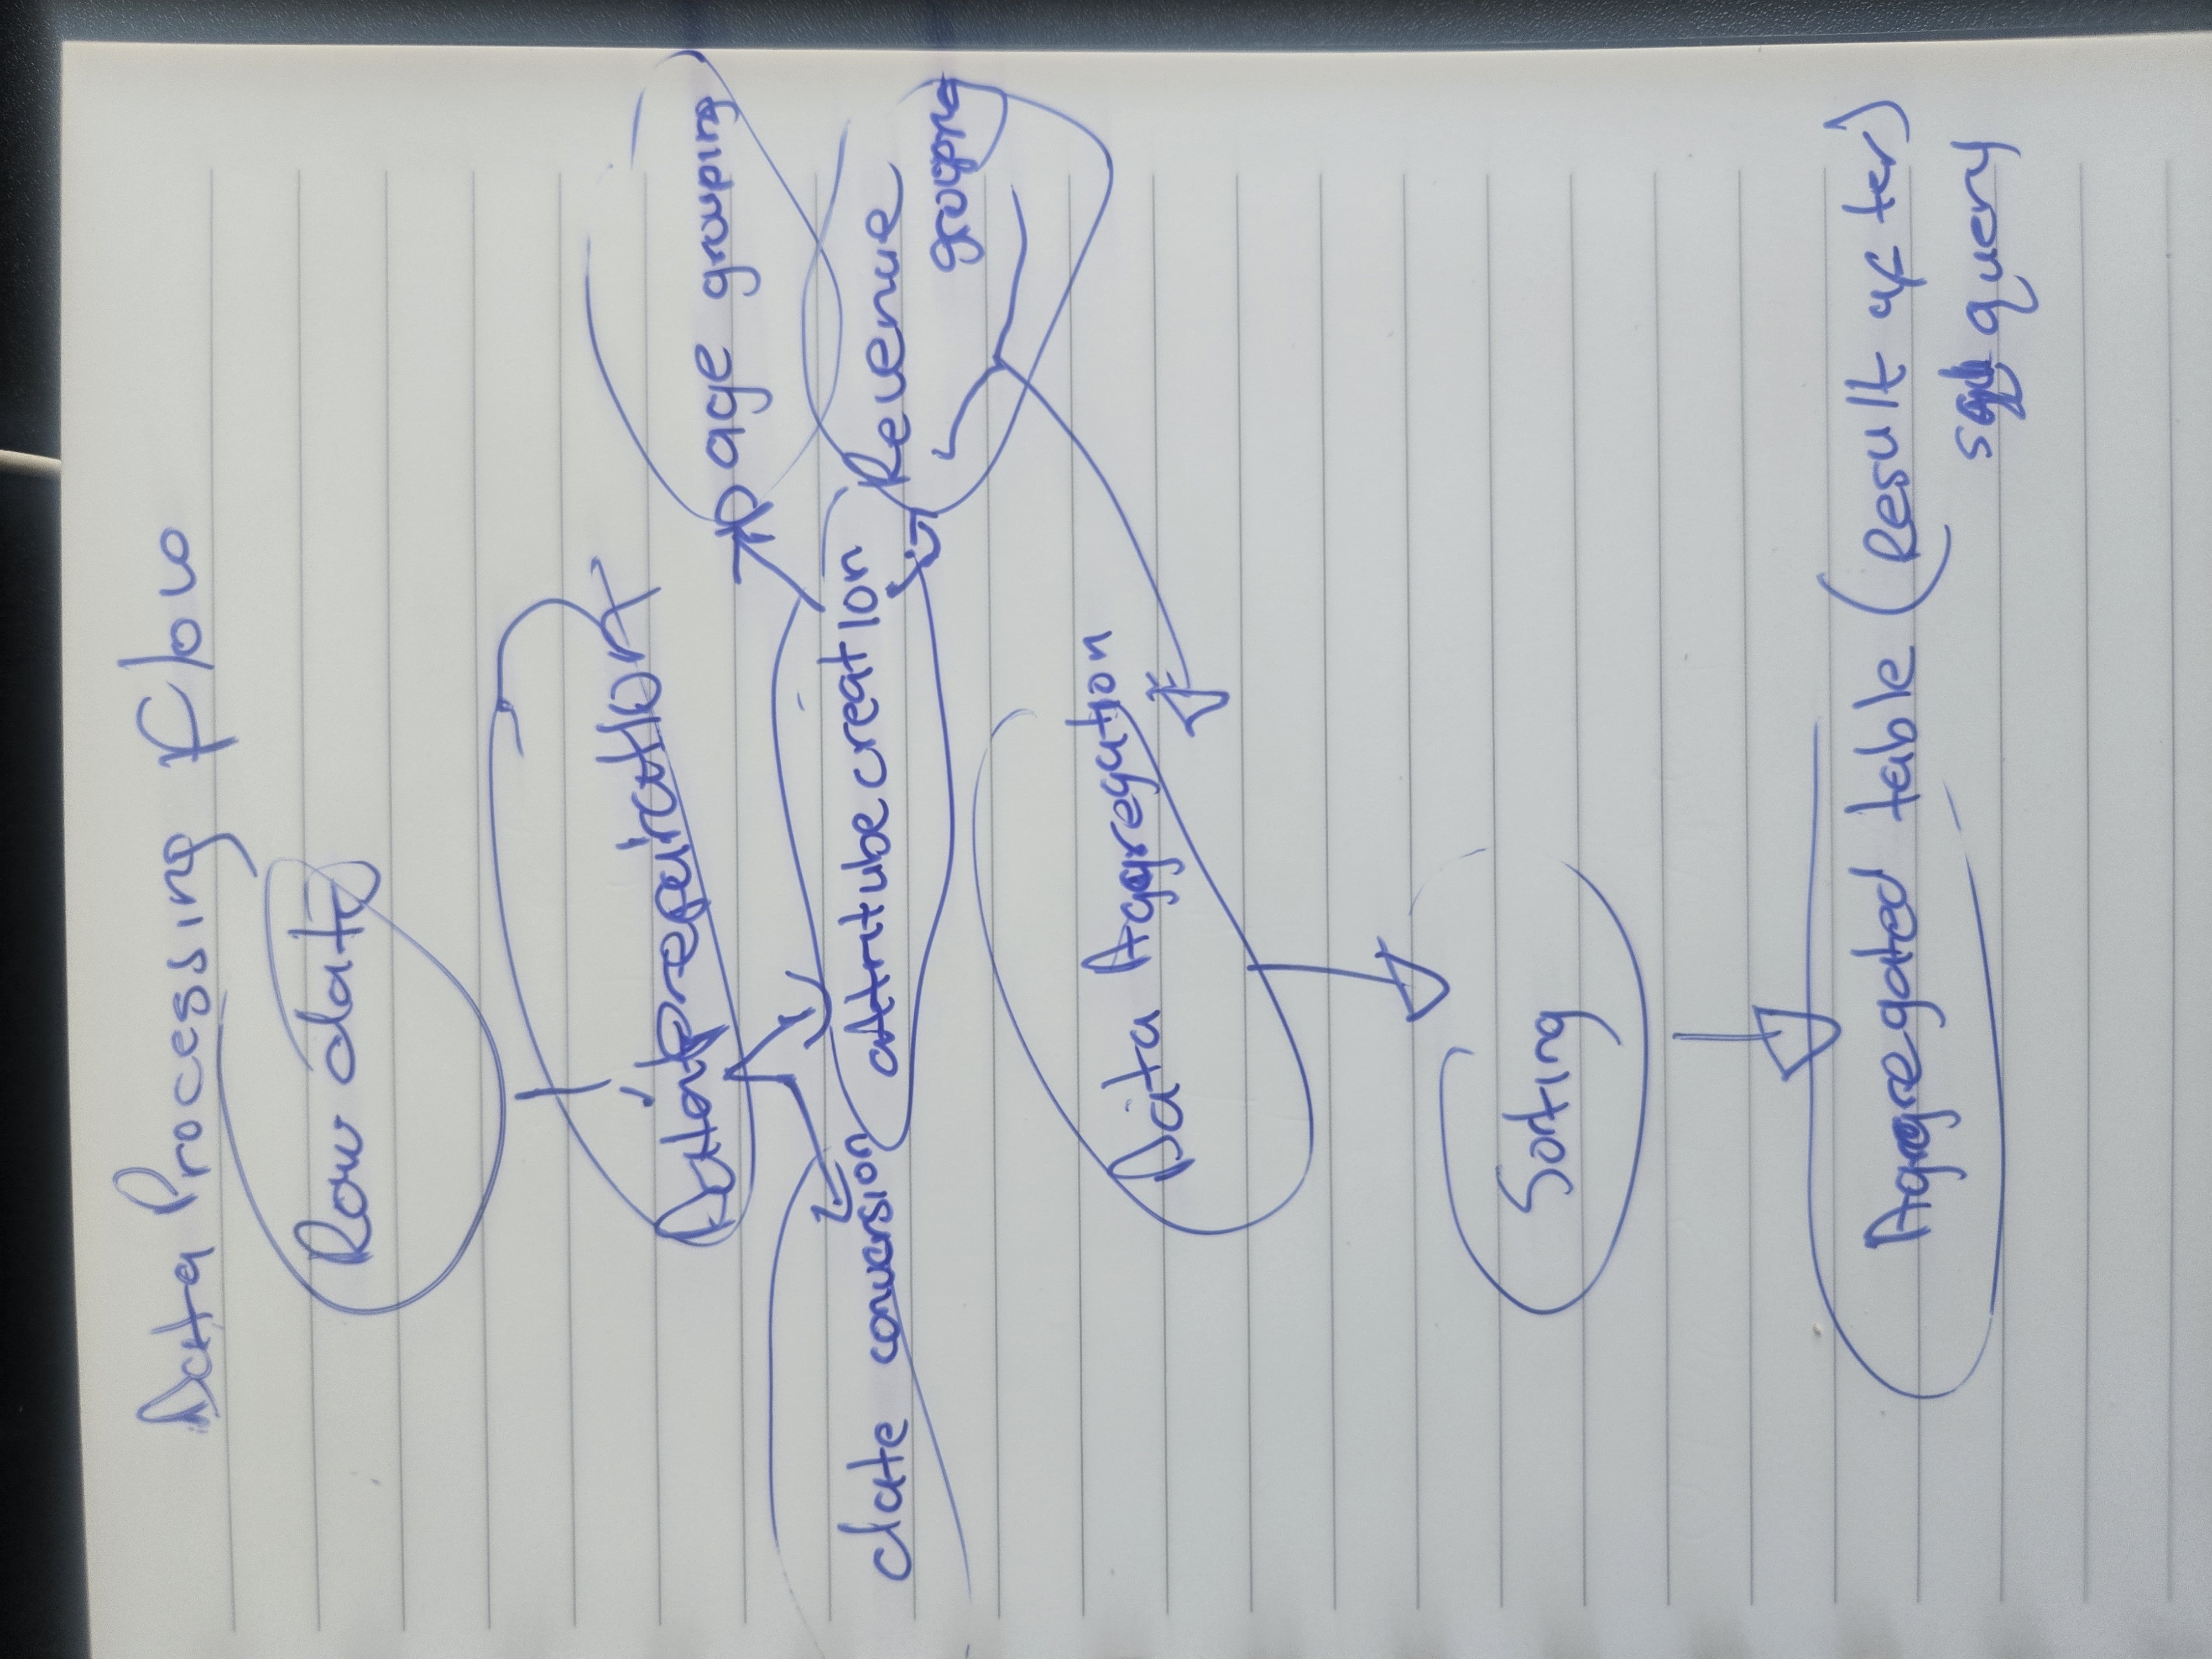 Data Processing Flow
Raw data
Data prepairation
page grouping
date conversion
attritube creation
Revenue
grouping
Data Aggregation
Sorting
Aggregated table (Result after)
sql query